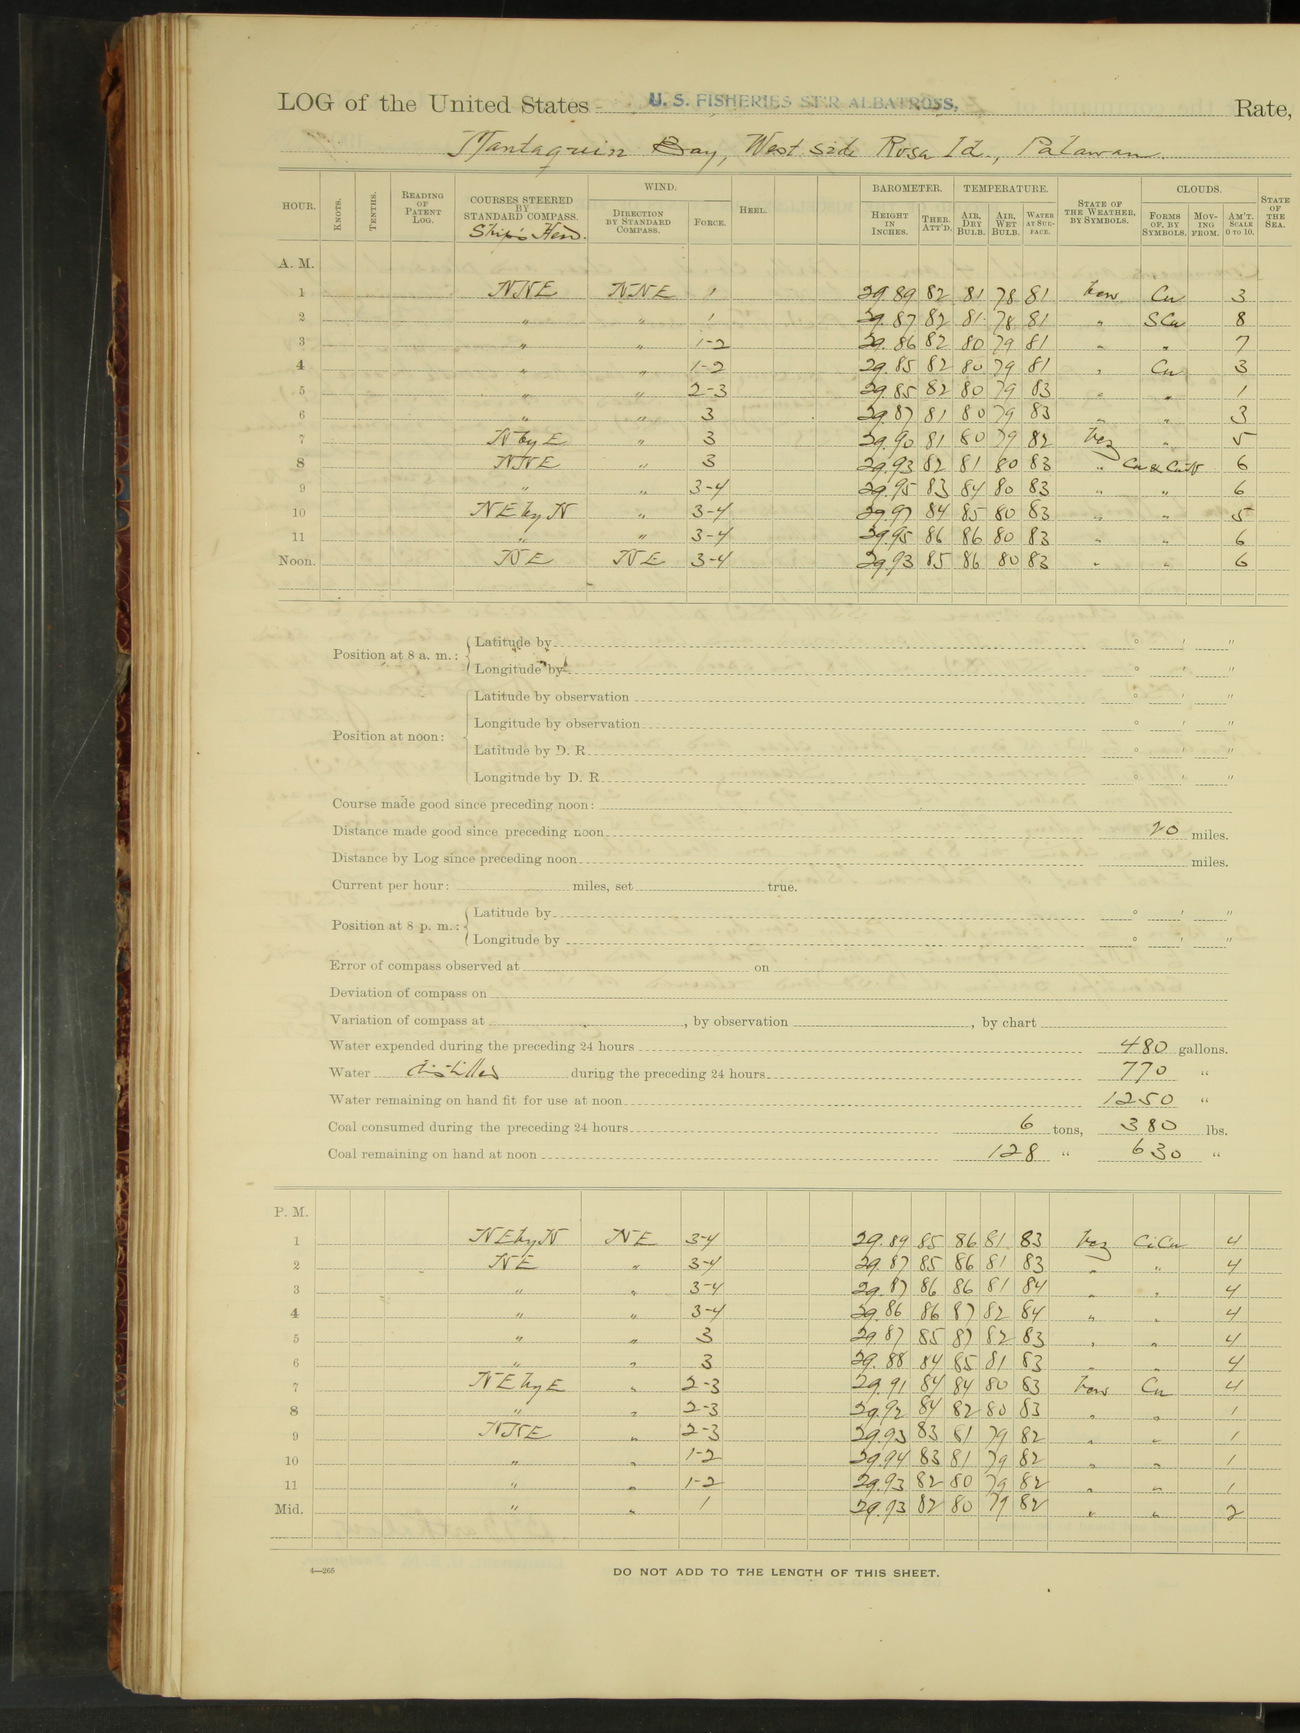 LOG of the United States U. S. FISHERIES STR ALBATROSS, Rate,
Mantaquin Bay, West side Rosa Id., Palawan
HOUR. KNOTS. TENTHS. READING OF PATENT LOG. COURSES STEERED BY STANDARD COMPASS. Ship's Head. WIND. DIRECTION BY STANDARD COMPASS. FORCE. HEEL. BAROMETER. HEIGHT IN INCHES. THER. ATT'D. TEMPERATURE. AIR, DRY BULB. AIR, WET BULB. WATER AT SURFACE. STATE OF THE WEATHER, BY SYMBOLS. CLOUDS. FORMS OF, BY SYMBOLS. MOVING FROM. AM'T. SCALE 0 TO 10. STATE OF THE SEA.
A. M.
1 NNE NNE 1 29.89 82 81 78 81 Cu 3
2 " " 1 29.87 82 81 78 81 " SCu 8
3 " " 1-2 29.86 82 80 79 81 " " 7
4 " " 1-2 29.85 82 80 79 81 " Cu 3
5 " " 2-3 29.85 82 80 79 83 " " 1
6 " " 3 29.87 81 80 79 83 " " 3
7 N by E " 3 29.90 81 80 79 82 bcz " 5
8 NNE " 3 29.93 82 81 80 83 " Cu & CuN 6
9 " " 3-4 29.95 83 84 80 83 " " 6
10 NE by N " 3-4 29.97 84 85 80 83 " " 5
11 " " 3-4 29.95 86 86 80 83 " " 6
Noon. NE NE 3-4 29.93 85 86 80 83 " " 6
Position at 8 a. m.: Latitude by ° ' "
Longitude by ° ' "
Position at noon: Latitude by observation ° ' "
Longitude by observation ° ' "
Latitude by D. R. ° ' "
Longitude by D. R. ° ' "
Course made good since preceding noon:
Distance made good since preceding noon 20 miles.
Distance by Log since preceding noon miles.
Current per hour: miles, set true.
Position at 8 p. m.: Latitude by ° ' "
Longitude by ° ' "
Error of compass observed at on
Deviation of compass on
Variation of compass at , by observation , by chart
Water expended during the preceding 24 hours 480 gallons.
Water distilled during the preceding 24 hours 770 "
Water remaining on hand fit for use at noon 1250 "
Coal consumed during the preceding 24 hours 6 tons, 380 lbs.
Coal remaining on hand at noon 128 " 630 "
P. M.
1 NE by N NE 3-4 29.89 85 86 81 83 bcz CiCu 4
2 NE " 3-4 29.87 85 86 81 83 " " 4
3 " " 3-4 29.87 86 86 81 84 " " 4
4 " " 3-4 29.86 86 87 82 84 " " 4
5 " " 3 29.87 85 87 82 83 " " 4
6 " " 3 29.88 84 85 81 83 " " 4
7 NE by E " 2-3 29.91 84 84 80 83 Cu 4
8 " " 2-3 29.92 84 82 80 83 " " 1
9 NNE " 2-3 29.93 83 81 79 82 " " 1
10 " " 1-2 29.94 83 81 79 82 " " 1
11 " " 1-2 29.93 82 80 79 82 " " 1
Mid. " " 1 29.93 82 80 79 82 " " 2
4—265
DO NOT ADD TO THE LENGTH OF THIS SHEET.